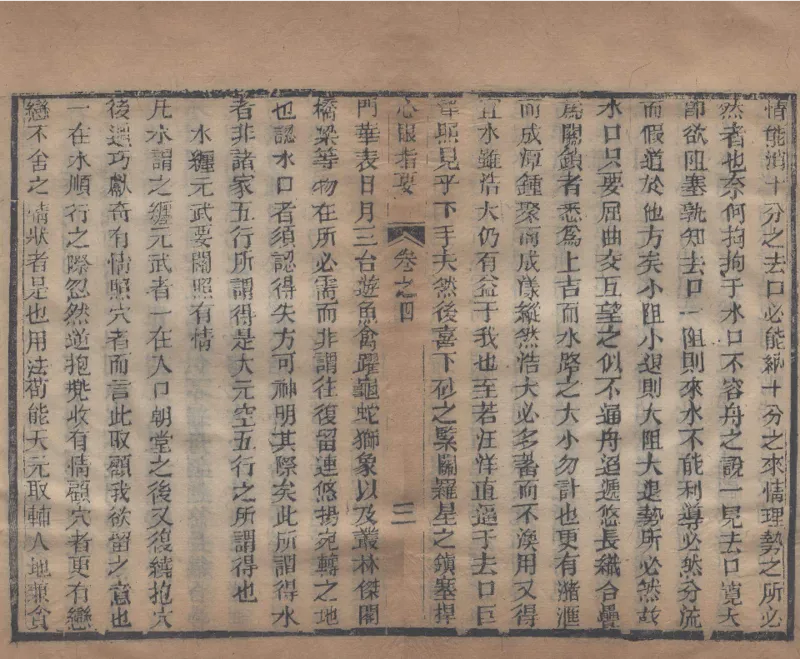 情能消十分之去口必能納十分之來情理勢之所必
然者也奈何拘拘于水口不容舟之說一見去口寬大
即欲阻塞孰知去口一阻則來水不能利導必然分流
而假道於他方矣小阻小退則大阻大退勢所必然故
水口只要屈曲交互望之似不通舟迢遞悠長織合疊
為關鎖者悉為上吉而水路之大小勿計也更有瀦滙
而成潭鍾聚而成漾縱然浩大必多蓄而不渙用又得
宜水雖浩大仍有益于我也至若汪洋直瀉于去口巨
浸照見乎下手夫然後喜下砂之緊關羅星之鎮塞捍
心眼指要
卷之四
三
門華表日月三台遊魚禽躍龜蛇獅象以及叢林傑閣
橋梁等物在所必需而非謂往復留連悠揚宛轉之地
也認水口者須認得失方可神明其際矣此所謂得水
者非諸家五行所謂得是大元空五行之所謂得也
水纏元武要關照有情
凡水謂之纏元武者一在入口朝堂之後又復繞抱穴
後過巧獻奇有情照穴者而言此取顧我欲留之意也
一在水順行之際忽然逆抱兜收有情顧穴者更有戀
戀不舍之情狀者是也用法苟能天元取輔人地兼貪